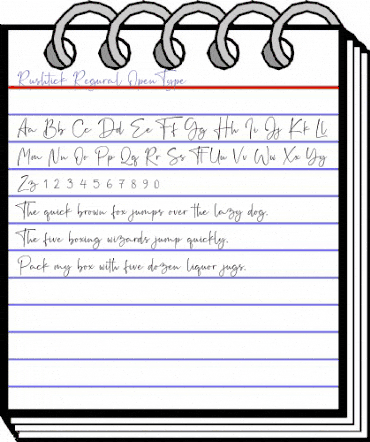 Rushtick Regural OpenType
Aa Bb Cc Dd Ee Ff Gg Hh Ii Jj Kk Ll
Mm Nn Oo Pp Qq Rr Ss Tt Uu Vv Ww Xx Yy
Zz 1 2 3 4 5 6 7 8 9 0
The quick brown fox jumps over the lazy dog.
The five boxing wizards jump quickly.
Pack my box with five dozen liquor jugs.